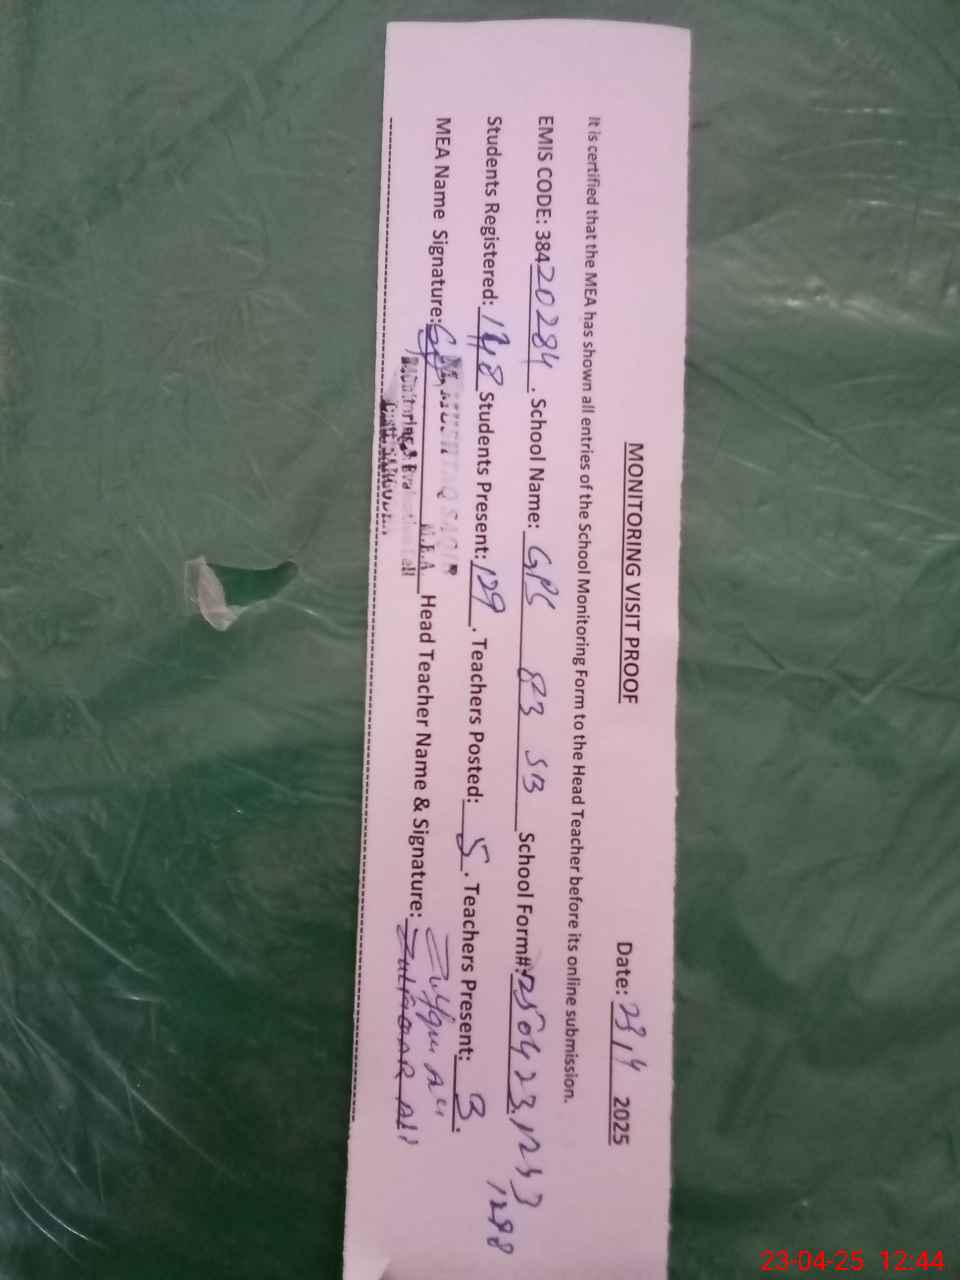 MONITORING VISIT PROOF
Date: 23/4 2025
It is certified that the MEA has shown all entries of the School Monitoring Form to the Head Teacher before its online submission.
EMIS CODE: 38420284. School Name: GPS 83 SB School Form#: 250423,1253
1298
Students Registered: 148 Students Present: 129. Teachers Posted: 5. Teachers Present: 3.
MEA Name Signature: Head Teacher Name & Signature: Zulfqar Ali
Zulfqar Ali
M.E.A
Monitoring &
23-04-25 12:44